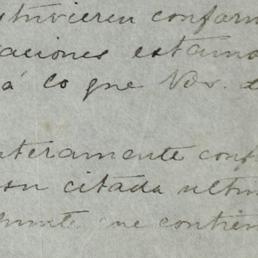 stuvieren conform
aciones estamo
á lo que Vds. d
nteramente conf
su citada ultim
que contien